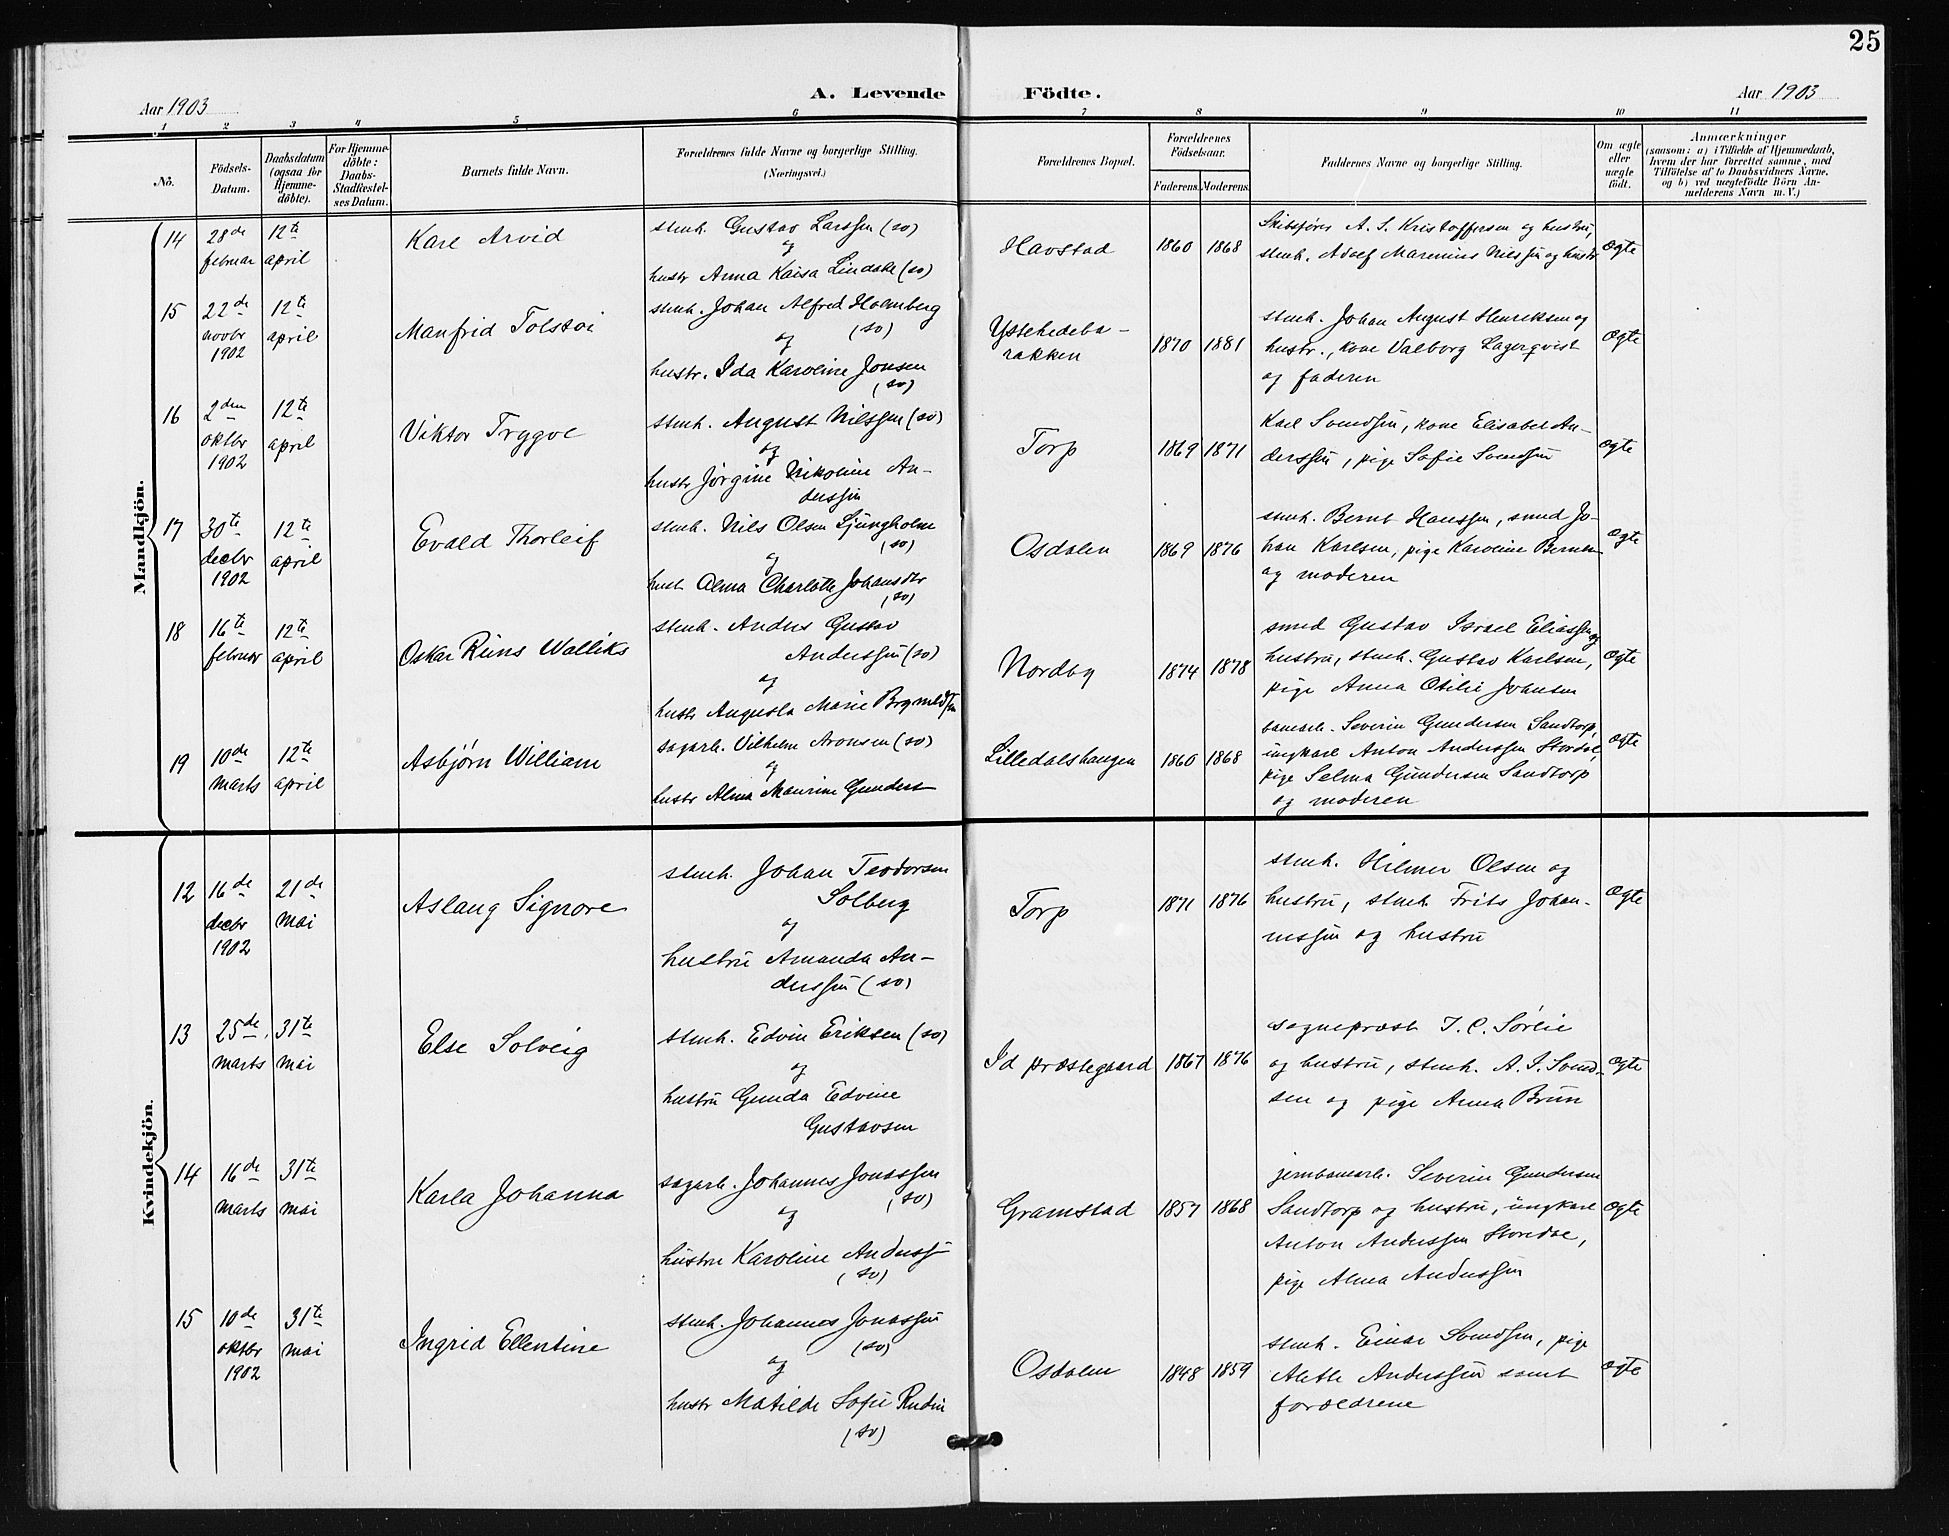 25
Aar 1903
A. Levende Födte.
Aar 1903
1 2 3 4 5 6 7 8 9 10 11
No.
Födsels-
Datum.
Daabsdatum
(ogsaa for
Hjemme-
döbte).
For Hjemme-
döbte:
Daabs-
Stadfæstel-
ses Datum.
Barnets fulde Navn.
Forældrenes fulde Navne og borgerlige Stilling.
(Næringsvei.)
Forældrenes Bopæl.
Forældrenes
Födselsaar.
Faderens. Moderens.
Faddernes Navne og borgerlige Stilling.
Om ægte
eller
uægte
födt.
Anmærkninger
(saasom: a) i Tilfælde af Hjemmedaab,
hvem der har forrettet samme, med
Tilföielse af to Daabsvidners Navne,
og b) ved uægtefödte Börn An-
melderens Navn m. V.)
Mandkjön.
14
28de
februar
12te
april
Kare Arvid
stenh. Gustav Larssen (sv)
og
hustr Anna Kaisa Lindahl (sv)
Havstad
1860 1868
Skibsfører A. S. Kristoffersen og hustru,
stenh. Adolf Marenius Nilssen og hustr
ægte
15
22de
novbr
1902
12te
april
Manfrid Tolstoi
stenh. Johan Alfred Holmberg
(sv)
og
hustr. Ida Karoline Jonsen
(sv)
Ystehedeba-
rakken
1870 1881
stenh. Johan August Henriksen og
hustr., kone Valborg Lagerqvist
og faderen
ægte
16
2den
oktbr
1902
12te
april
Viktor Trygve
stenh. August Nilssen (sv)
og
hustr Jørgine Nikoline An-
derssen
Torp
1869 1871
Karl Svendsen, kone Elisabet An-
derssen, pige Sofie Svendsen
ægte
17
30te
decbr
1902
12te
april
Evald Thorleif
stenh. Nils Olsen Ljungholm
(sv)
og
hust Alma Charlotte Johansdtr
(sv)
Osdalen
1869 1876
stenh. Bernt Hanssen, smed Jo-
han Karlsen, pige Karoline Bernts
og moderen
ægte
18
16te
februar
12te
april
Oskar Reins Walliks
stenh. Anders Gustav
Anderssen (sv)
og
hustr Augusta Marie Brynildsen
Nordby
1874 1878
smed Gustav Israel Eliassen og
hustru, stenh. Gustav Karlsen,
pige Anna Otilie Johansen
ægte
19
10de
marts
12te
april
Asbjørn William
sagarb. Vilhelm Aronsen (sv)
og
hustr Alma Maurine Gunders
Lilledalshaugen
1860 1868
banearb. Severin Gundersen Sandtorp,
ungkarl Anton Anderssen Stordal,
pige Selma Gundersen Sandtorp
og moderen
ægte
Kvindekjön.
12
16de
decbr
1902
21de
mai
Aslaug Signore
stenh. Johan Teodorsen
Solberg
og
hustru Amanda An-
derssen (sv)
Torp
1871 1876
stenh. Hilmer Olsen og
hustru, stenh Frits Johan-
nessen og hustru
ægte
13
25de
marts
31te
mai
Else Solveig
stenh. Edvin Eriksen (sv)
og
hustru Gunda Edvine
Gustavsen
Id præstegaard
1867 1876
sogneprest J. C. Sørlie
og hustru, stenh. A. J. Svend-
sen og pige Anna Brun
ægte
14
16de
marts
31te
mai
Karla Johanna
sagarb. Johannes Jonassen
(sv)
og
hustru Karoline Anderss
(sv)
Gramstad
1857 1868
jernbanearb. Severin Gundersen
Sandtorp og hustru, ungkarl
Anton Anderssen Stordal,
pige Alma Anderssen
ægte
15
10de
oktbr
1902
31te
mai
Ingrid Ellentine
stenh. Johannes Jonassen
(sv)
og
hustr Matilde Sofie Rudin
(sv)
Osdalen
1848 1859
stenh. Einar Svendsen, pige
Alette Anderssen samt
forældrene
ægte